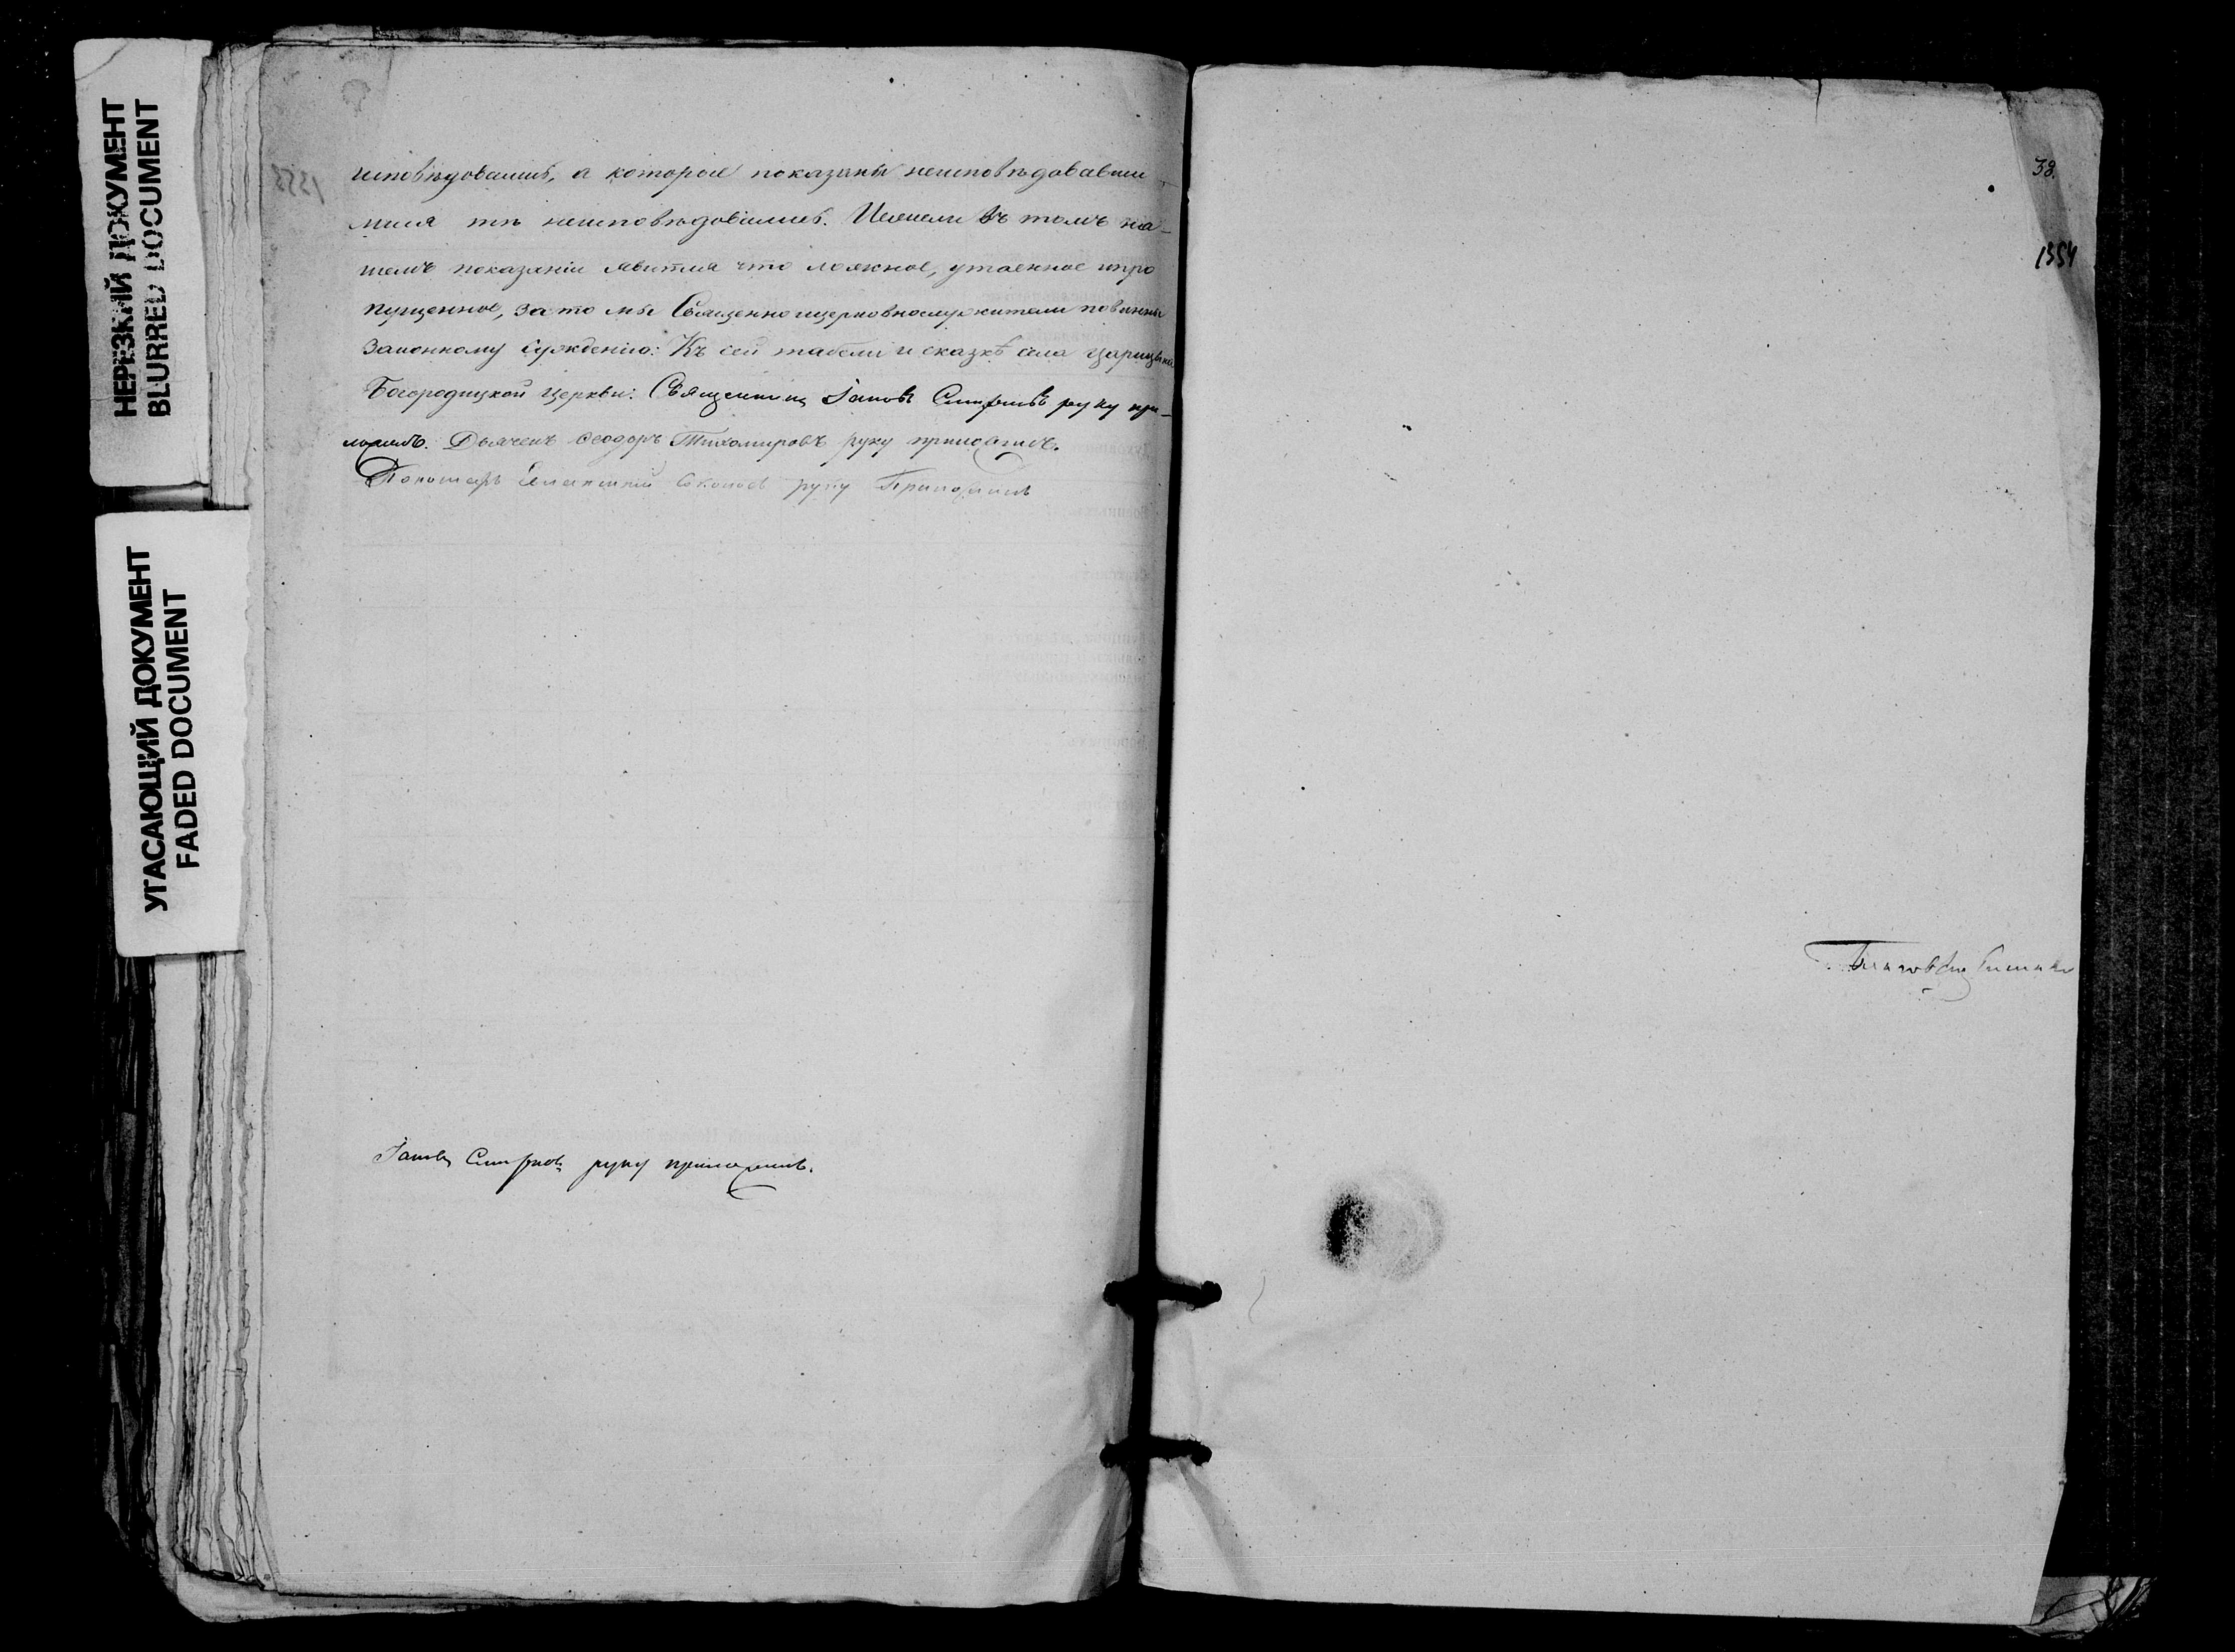 НЕРЕЗКИЙ ДОКУМЕНТ
BLURRED DOCUMENT
УГАСАЮЩИЙ ДОКУМЕНТ
FADED DOCUMENT
исповѣдовались, а которые показаны неисповѣдовавши-
мися тѣ неисповѣдовались. Иежели въ томъ на-
шемъ показаніи явится что ложное, утаенное ипро
пущенное, за то мы Священноицерковнослужители повинны
Законному сужденію: Къ сей табели и сказкѣ села
Богородицкой Церкви: Священникъ Іаковъ Смирновъ руку при-
ложилъ. Дьячекъ Ѳеодоръ Тихомировъ руку приложилъ.
Пономарь руку Приложилъ
Іаковъ Смирновъ руку приложилъ.
38.
1354